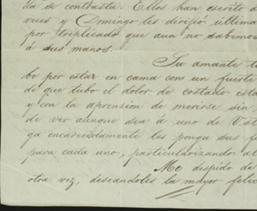 da de contrasta. Ellos han escrito d
rues y Domingo les dirijió última
por triplicado que aun no sabemos
á sus manos.
Su amante t
bo por estar en cama con un fuerte
de que tubo el dolor de costado esta
y con la aprension de morirse sin
de ver aunque sea á uno de V
ga encarecidamente les ponga dos
para cada uno, particularizando al
Me despido de
otra vez, deseandoles la mayor feli